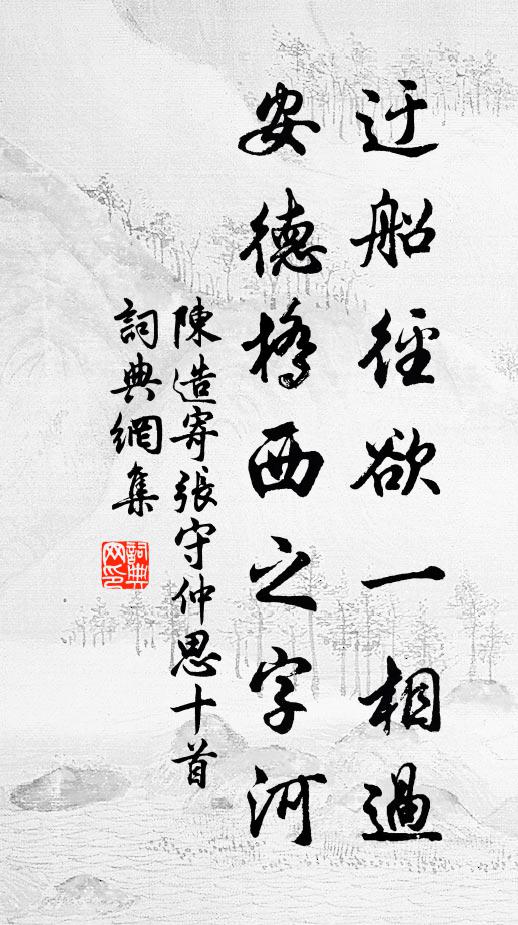 迂船徑欲一相過
安德橋西之字河
陳造寄張守仲思十首
詞典網集
詞典网印